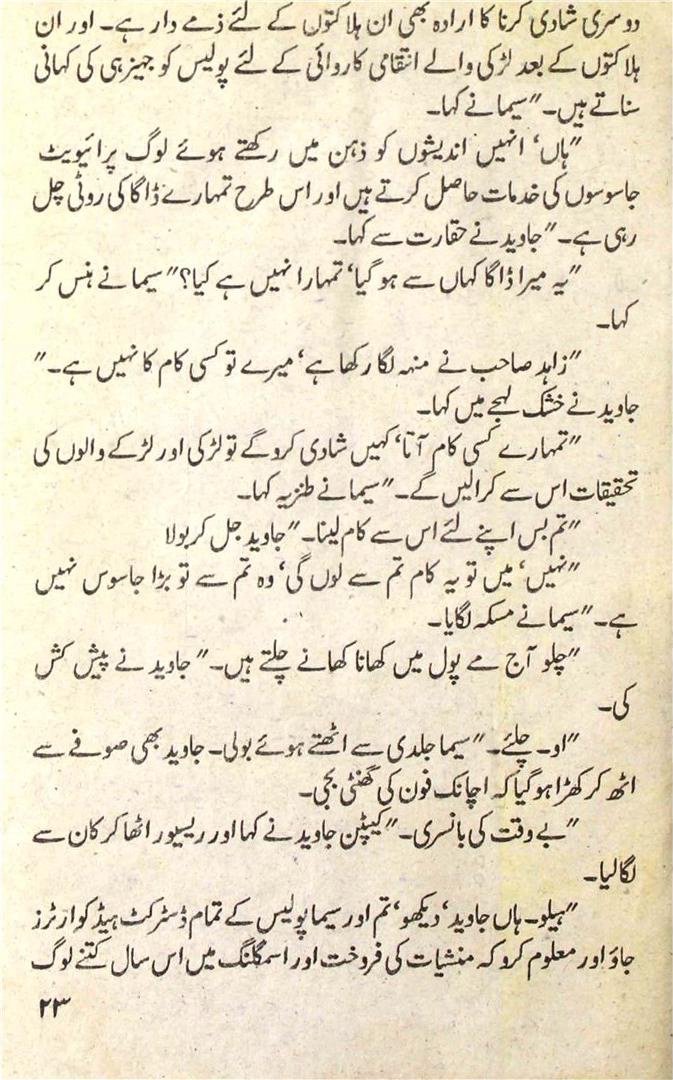 دوسری شادی کرنا کا ارادہ بھی ان ہلاکتوں کے لئے ذمے دار ہے۔ اور ان
ہلاکتوں کے بعد لڑکی والے انتقامی کاروائی کے لئے پولیس کو جہیز ہی کی کہانی
سناتے ہیں۔" سیمانے کہا۔
"ہاں‘ انہیں اندیشوں کو ذہن میں رکھتے ہوئے لوگ پرائیویٹ
جاسوسوں کی خدمات حاصل کرتے ہیں اور اس طرح تمہارے ڈاگا کی روٹی چل
رہی ہے۔" جاوید نے حقارت سے کہا۔
"یہ میرا ڈاگا کہاں سے ہو گیا‘ تمہارا نہیں ہے کیا؟" سیمانے ہنس کر
کہا۔
"زاہد صاحب نے منہہ لگا رکھا ہے‘ میرے تو کسی کام کا نہیں ہے۔"
جاوید نے خشک لہجے میں کہا۔
"تمہارے کسی کام آتا‘ کہیں شادی کروگے تو لڑکی اور لڑکے والوں کی
تحقیقات اس سے کرالیں گے۔" سیمانے طنزیہ کہا۔
"تم بس اپنے لئے اس سے کام لینا۔" جاوید جل کر بولا
"نہیں‘ میں تو یہ کام تم سے لوں گی‘ وہ تم سے تو بڑا جاسوس نہیں
ہے۔" سیمانے مسکہ لگایا۔
"چلو آج مے پول میں کھانا کھانے چلتے ہیں۔" جاوید نے پیش کش
کی۔
"او۔ چلئے۔" سیما جلدی سے اٹھتے ہوئے بولی۔ جاوید بھی صوفے سے
اٹھ کر کھڑا ہو گیا کہ اچانک فون کی گھنٹی بجی۔
"بے وقت کی بانسری۔" کیپٹن جاوید نے کہا اور ریسیور اٹھا کر کان سے
لگالیا۔
"ہیلو۔ ہاں جاوید‘ دیکھو‘ تم اور سیما پولیس کے تمام ڈسٹرکٹ ہیڈ کوارٹرز
جاؤ اور معلوم کرو کہ منشیات کی فروخت اور اسمگلنگ میں اس سال کتنے لوگ
۲۳